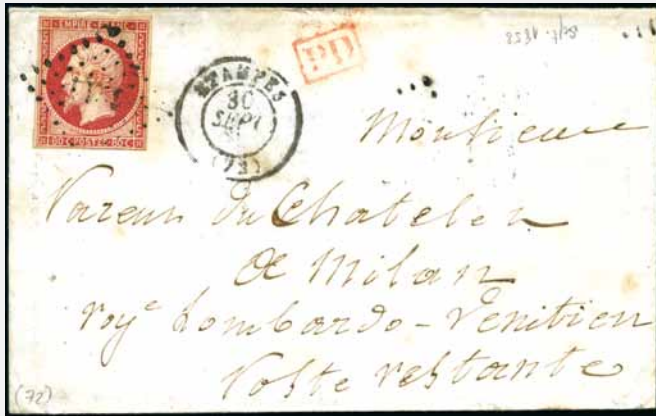 EMPIRE FRANC
80 C POSTES 80 C
ETAMPES
30
SEPT
PD
Monsieur
du Chateler
de Milan
roy^e Lombardo-Venitien
Poste restante
(72)